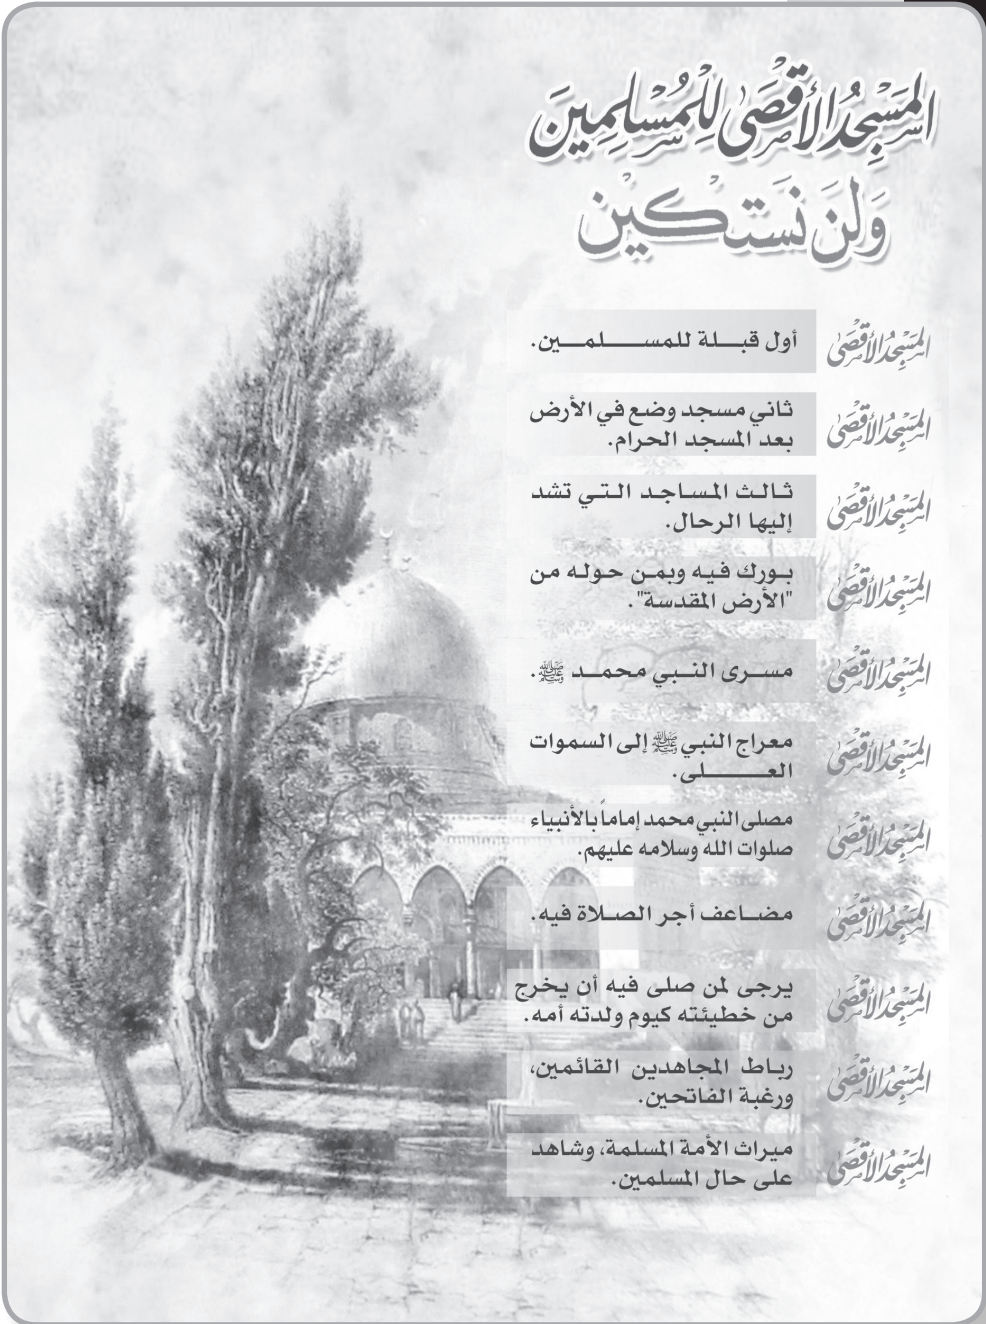 المَسْجِدُ الأَقْصَىٰ لِلْمُسْلِمِينَ
وَلَنْ نَسْتَكِيْن
المَسْجِدُ الأَقْصَىٰ
أول قبـــلة للمســـــلمـــين.
المَسْجِدُ الأَقْصَىٰ
ثاني مسجد وضع في الأرض
بعد المسجد الحرام.
المَسْجِدُ الأَقْصَىٰ
ثالث المساجد التي تشد
إليها الرحال.
المَسْجِدُ الأَقْصَىٰ
بورك فيه وبمن حوله من
"الأرض المقدسة".
المَسْجِدُ الأَقْصَىٰ
مسرى النبي محمد ﷺ.
المَسْجِدُ الأَقْصَىٰ
معراج النبي ﷺ إلى السموات
العـــــــلى.
المَسْجِدُ الأَقْصَىٰ
مصلى النبي محمد إماماً بالأنبياء
صلوات الله وسلامه عليهم.
المَسْجِدُ الأَقْصَىٰ
مضاعف أجر الصلاة فيه.
المَسْجِدُ الأَقْصَىٰ
يرجى لمن صلى فيه أن يخرج
من خطيئته كيوم ولدته أمه.
المَسْجِدُ الأَقْصَىٰ
رباط المجاهدين القائمين،
ورغبة الفاتحين.
المَسْجِدُ الأَقْصَىٰ
ميراث الأمة المسلمة، وشاهد
على حال المسلمين.